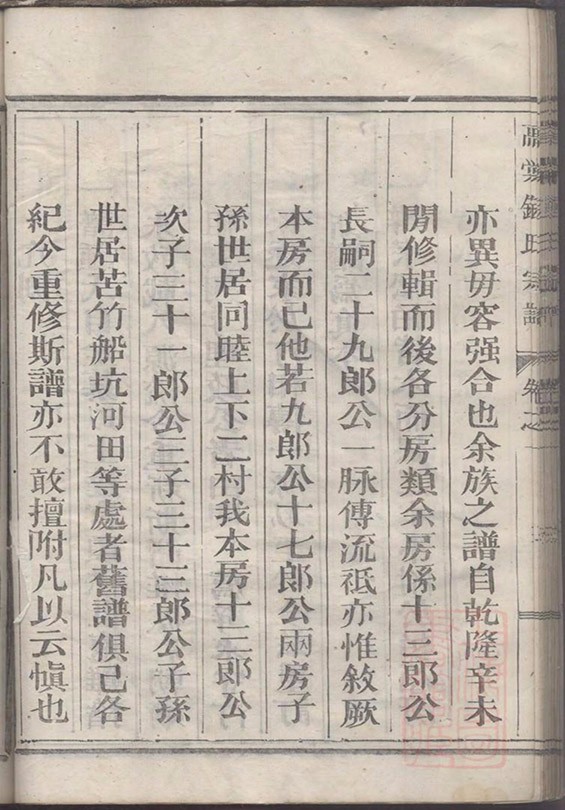 亦異毋容强合也余族之譜自乾隆辛未
閒修輯而後各分房類余房係十三郎公
長嗣二十九郎公一脉傳流祗亦惟敘厥
本房而已他若九郎公十七郎公兩房子
孫世居同睦上下二村我本房十三郎公
次子三十一郎公三子三十三郎公子孫
世居苦竹船坑河田等處者舊譜俱已各
紀今重修斯譜亦不敢擅附凡以云愼也
氏宗譜
卷之